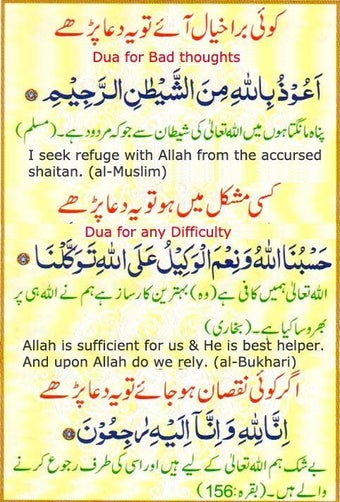 کوئی برا خیال آئے تو یہ دعا پڑھے
Dua for Bad thoughts
اَعُوْذُ بِاللهِ مِنَ الشَّيْطٰنِ الرَّجِيْمِ
پناہ مانگتا ہوں میں اللہ تعالیٰ کی شیطان سے جو کہ مردود ہے۔(مسلم)
I seek refuge with Allah from the accursed
shaitan. (al-Muslim)
کسی مشکل میں ہو تو یہ دعا پڑھے
Dua for any Difficulty
حَسْبُنَا اللهُ وَنِعْمَ الْوَكِيْلُ عَلَى اللهِ تَوَكَّلْنَا
اللہ تعالیٰ ہمیں کافی ہے (وہ) بہترین کارساز ہے ہم نے اللہ ہی پر
بھروسا کیا ہے۔(بخاری)
Allah is sufficient for us & He is best helper.
And upon Allah do we rely. (al-Bukhari)
اگر کوئی نقصان ہو جائے تو یہ دعا پڑھے
اِنَّا لِلّٰهِ وَاِنَّآ اِلَيْهِ رٰجِعُوْنَ
بے شک ہم اللہ تعالیٰ کے لیے ہیں اور اسی کی طرف رجوع کرنے
والے ہیں۔(بقرہ:156)